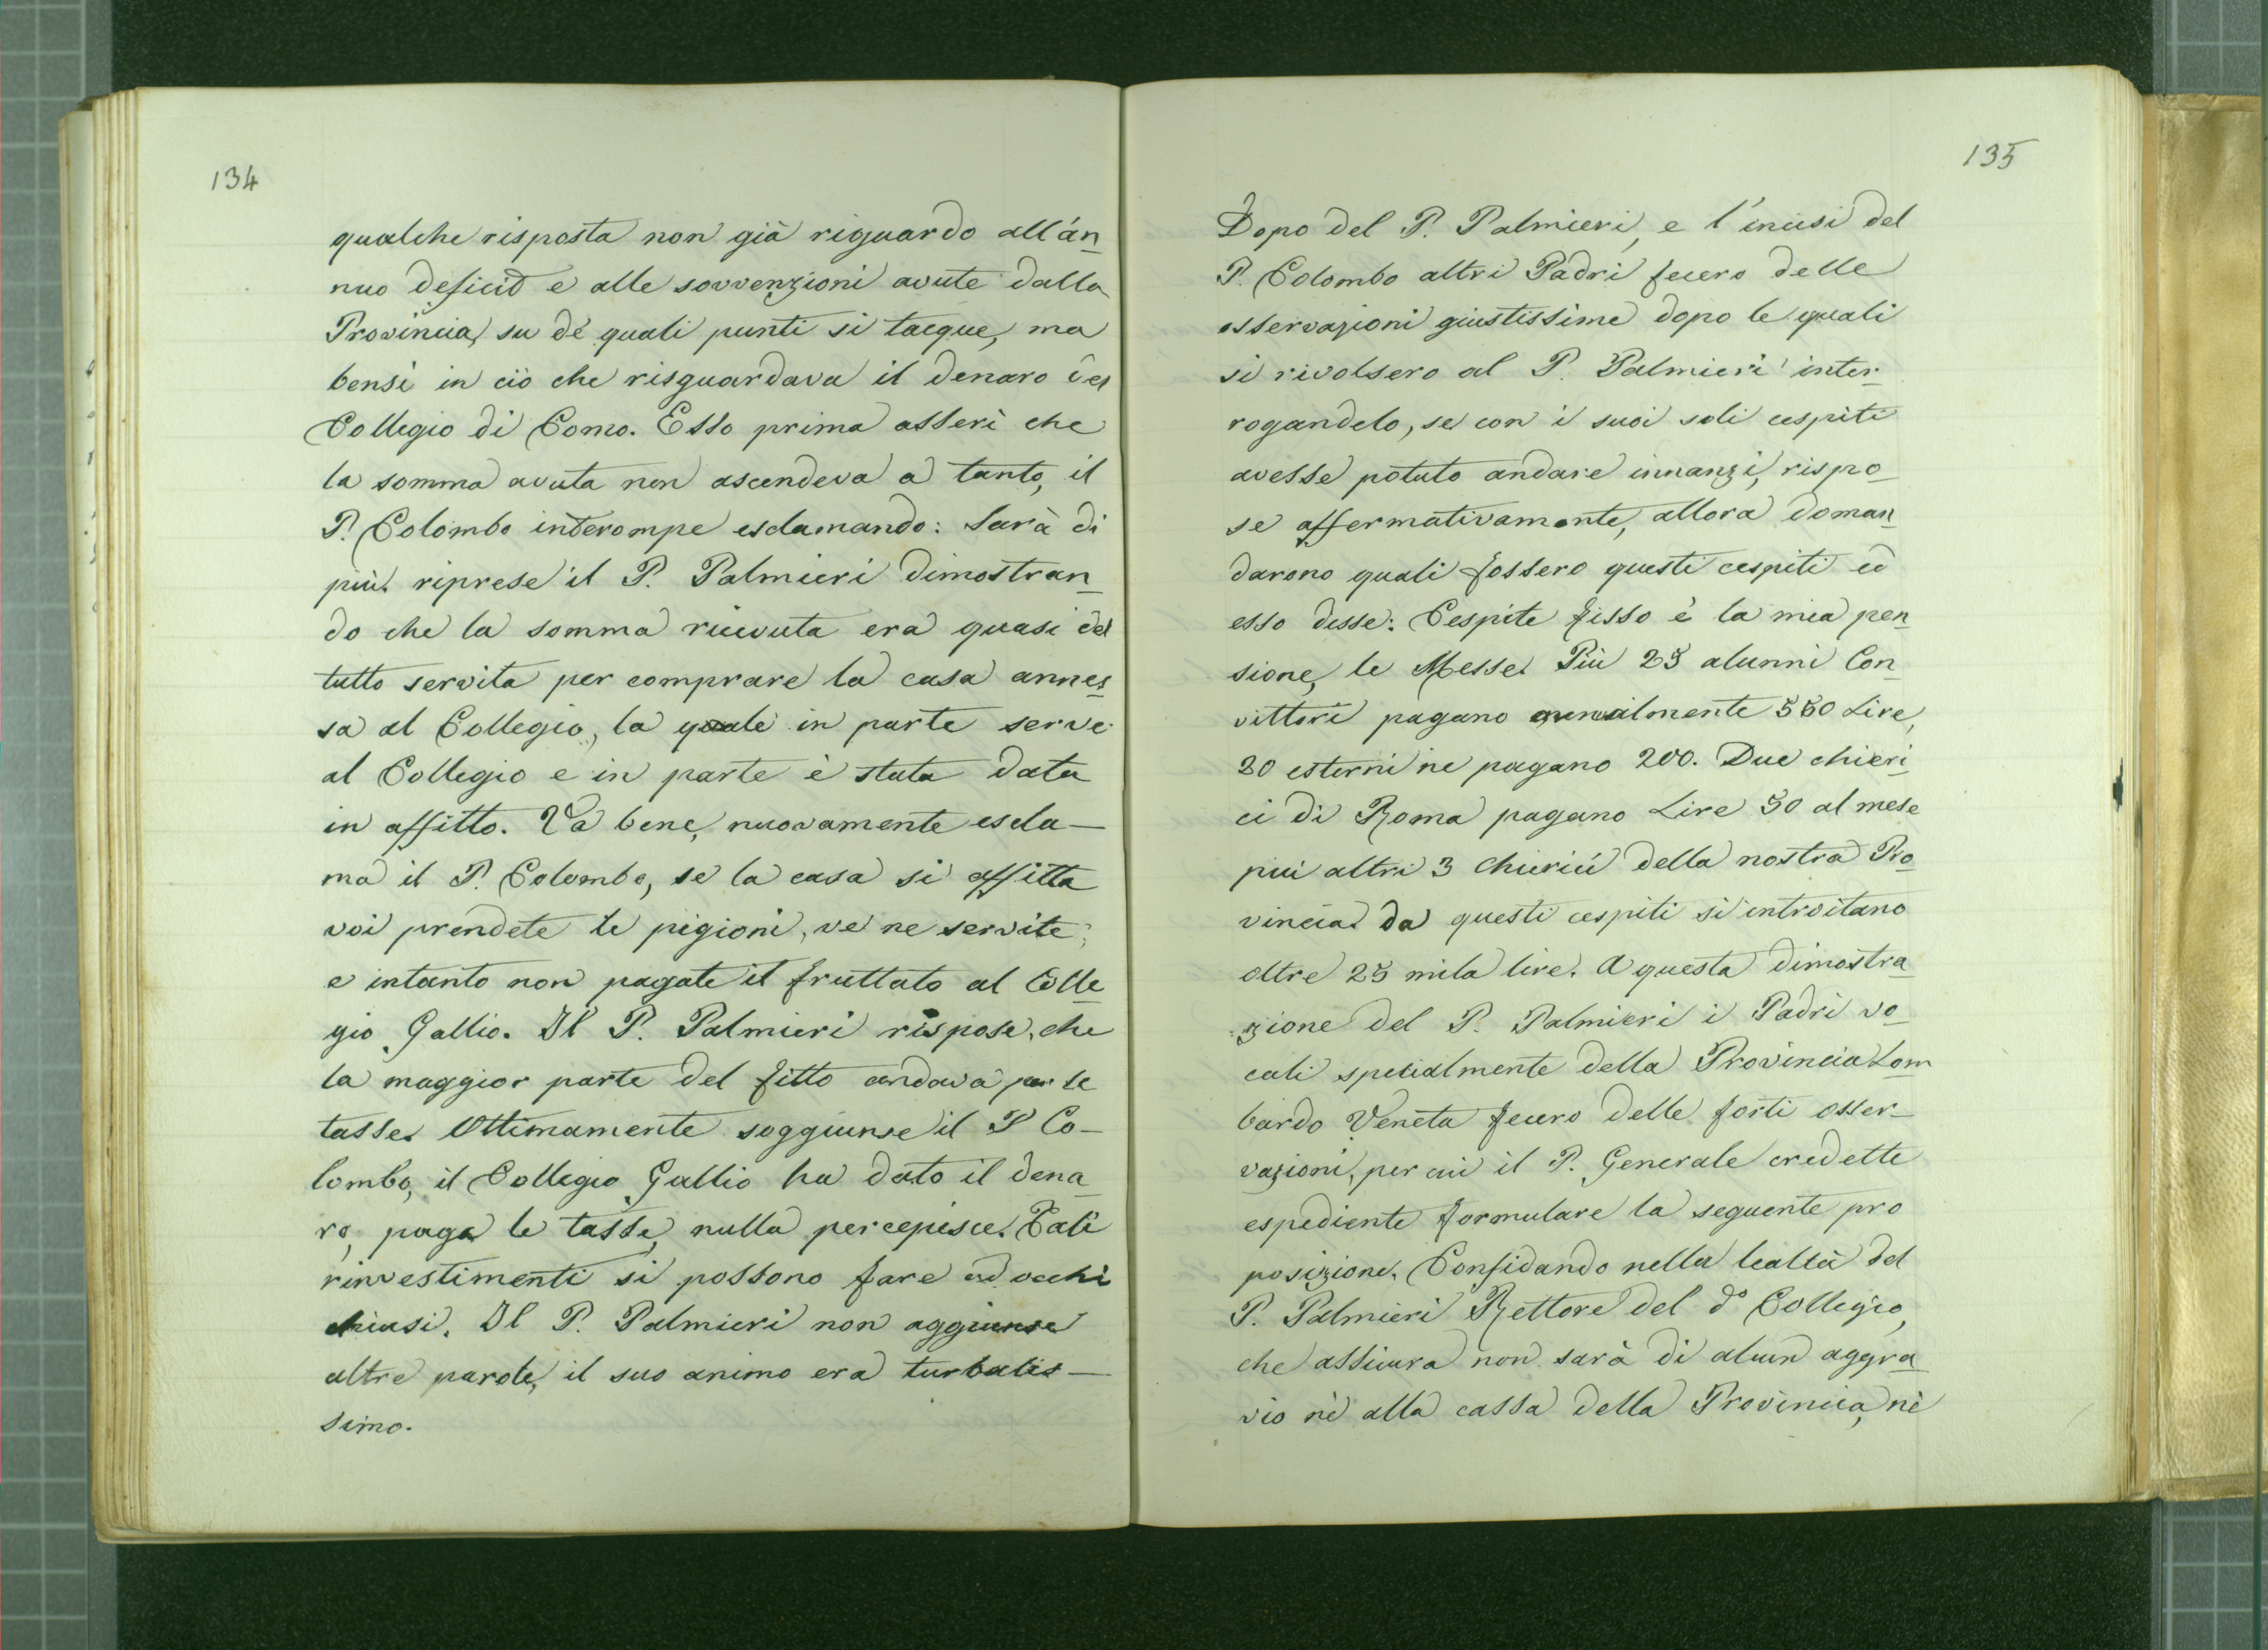 134
qualche risposta non già riguardo all'an
nuo deficit e alle sovvenzioni avute dalla
Provincia, su de' quali punti si tacque, ma
bensì in ciò che risguardava il denaro del
Collegio di Como. Esso prima asserì che
la somma avuta non ascendeva a tanto, il
P. Colombo interompe esclamando: Sarà di
più. riprese il P. Palmieri dimostran
do che la somma ricevuta era quasi del
tutto servita per comprare la casa annes
sa al Collegio, la quale in parte serve
al Collegio e in parte è stata data
in affitto. Va bene, nuovamente escla-
ma il P. Colombo, se la casa si affitta
voi prendete le pigioni, ve ne servite,
e intanto non pagate il fruttato al Colle
gio Gallio. Il P. Palmieri rispose, che
la maggior parte del fitto andava per le
tasse. Ottimamente soggiunse il P Co-
lombo, il Collegio Gallio ha dato il dena
ro, paga le tasse, nulla percepisce. Tali
rinvestimenti si possono fare ad occhi
chiusi. Il P. Palmieri non aggiunse
altre parole, il suo animo era turbatis-
simo.
135
Dopo del P. Palmieri, e l'incisi del
P. Colombo altri Padri fecero delle
osservazioni giustissime dopo le quali
si rivolsero al P. Palmieri inter
rogandolo, se con i suoi soli cespiti
avesse potuto andare innanzi, rispo
se affermativamente, allora doman
darono quali fossero questi cespiti ed
esso disse: Cespite fisso è la mia pen
sione, le Messe. Più 25 alunni Con
vittori pagano annualmente 550 Lire,
20 esterni ne pagano 200. Due chieri
ci di Roma pagano Lire 50 al mese
più altri 3 Chierici della nostra Pro
vincia. da questi cespiti si introitano
oltre 25 mila lire. A questa dimostra
zione del P. Palmieri i Padri vo
cali specialmente della Provincia Lom
bardo Veneta fecero delle forti osser-
vazioni, per cui il P. Generale credette
espediente formulare la seguente pro
posizione. Confidando nella lealtà del
P. Palmieri Rettore del do Collegio,
che assicura non sarà di alcun aggra
vio nè alla cassa della Provincia, nè